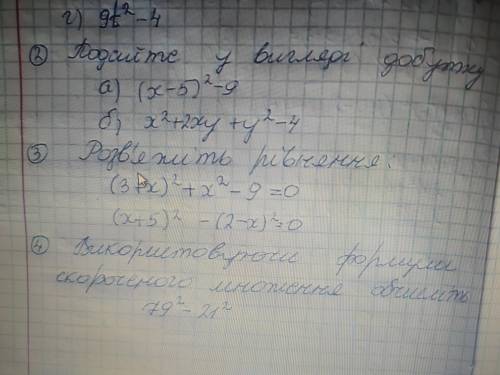 г) 9t²-4
② Подайте у вигляді добутку
а) (x-5)²-9
б) x²+2xy+y²-4
③ Розв'яжіть рівняння:
(3+x)²+x²-9=0
(x+5)² -(2-x)²=0
④ Використовуючи формули
скороченого множення обчисліть
79²-21²